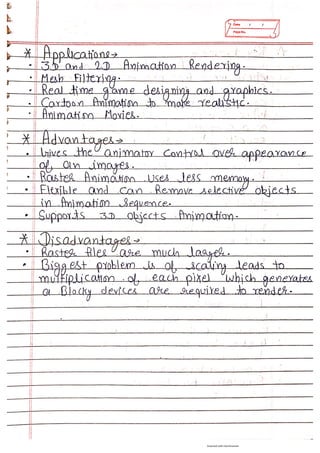 Date
Page No.
* Applications →
• 3D and 2D Animation Rendering.
• Mesh Filtering.
• Real time game designing and graphics.
• Cartoon Animation to make realistic.
• Animation Movies.
* Advantages →
• Gives the animator control over appearance
of an images.
• Raster Animation Uses less memory.
• Flexible and can Remove selective objects
in Animation Sequence.
• Supports 3D objects Animation.
* Disadvantages →
• Raster files are much larger.
• Biggest problem is of scaling leads to
multiplication of each pixel which generates
a Blocky devices are required to render.